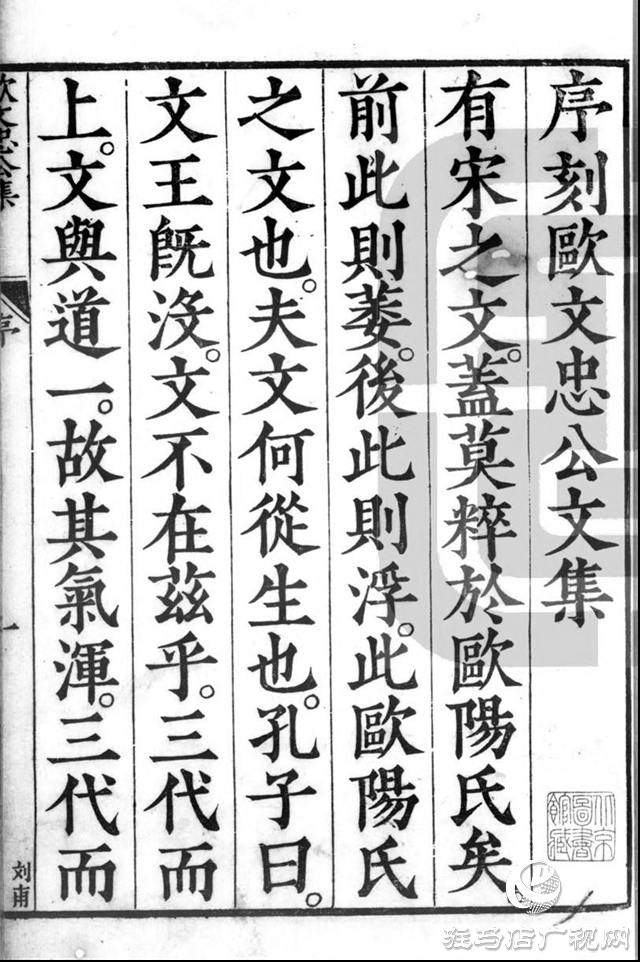 序刻歐文忠公文集
有宋之文。蓋莫粹於歐陽氏矣
前此則萎。後此則浮。此歐陽氏
之文也。夫文何從生也。孔子曰。
文王既沒。文不在茲乎。三代而
上。文與道一。故其氣渾。三代而
歐文忠公集
序
一
刘甫
北京
圖書
館藏
驻马店广视网